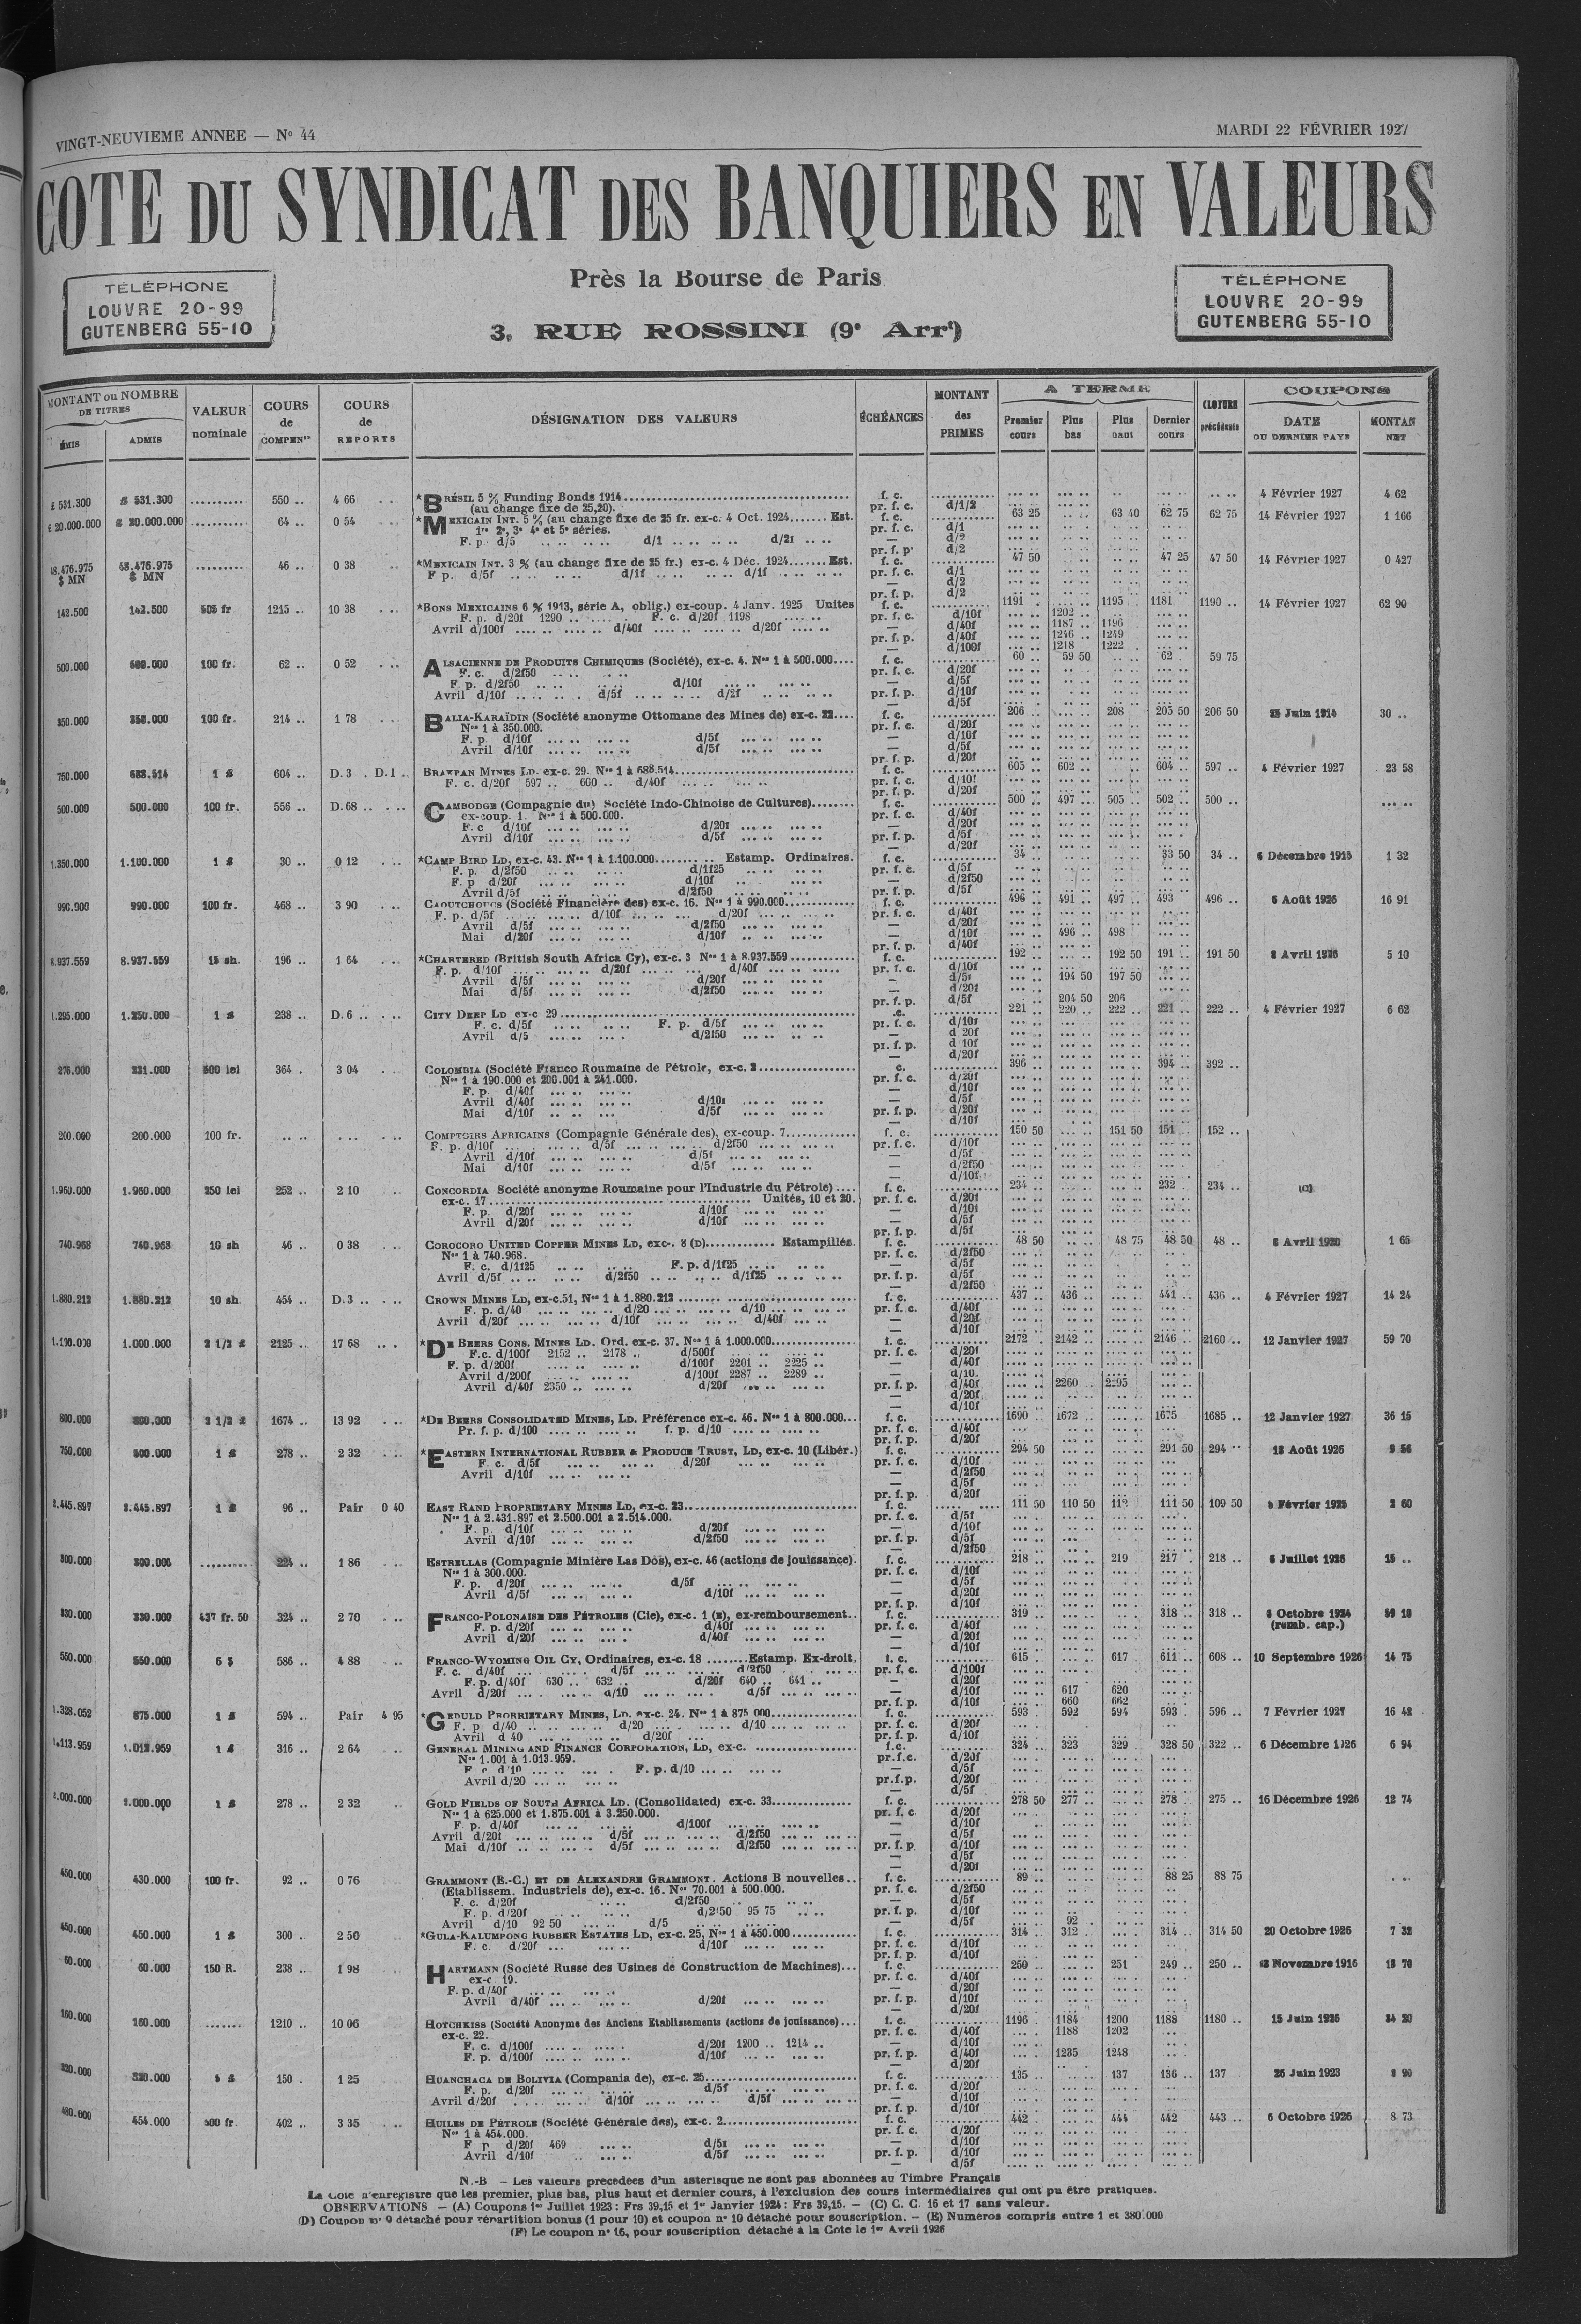 VINGT-NEUVIEME ANNEE — No 44
MARDI 22 FÉVRIER 1927
COTE DU SYNDICAT DES BANQUIERS EN VALEURS
TÉLÉPHONE
LOUVRE 20-99
GUTENBERG 55-10
Près la Bourse de Paris
3, RUE ROSSINI (9e Arrt)
TÉLÉPHONE
LOUVRE 20-99
GUTENBERG 55-10
MONTANT ou NOMBRE DE TITRES
ÉMIS
ADMIS
VALEUR nominale
COURS de COMPENon
COURS de REPORTS
DÉSIGNATION DES VALEURS
ÉCHÉANCES
MONTANT des PRIMES
A TERME
Premier cours
Plus bas
Plus haut
Dernier cours
CLOTURE précédente
COUPONS
DATE DU DERNIER PAYÉ
MONTAN NET
£ 531.300 £ 531.300 .......... 550 .. 4 66 *BRÉSIL 5 % Funding Bonds 1914 f. c. 4 Février 1927 4 62
(au change fixe de 25,20). pr. f. c. d/1/2
£ 20.000.000 £ 20.000.000 64 .. 0 54 *MEXICAIN INT. 5 % (au change fixe de 25 fr. ex-c. 4 Oct. 1924 Est. f. c. 63 25 63 40 62 75 62 75 14 Février 1927 1 166
1re 2e, 3e 4e et 5e séries. pr. f. c. d/1
F. p. d/5 d/1 d/21 — d/2
pr. f. p. d/2
48.476.975 $ MN 48.476.975 $ MN 46 .. 0 38 *MEXICAIN INT. 3 % (au change fixe de 25 fr.) ex-c. 4 Déc. 1924 Est. f. c. 47 50 47 25 47 50 14 Février 1927 0 427
F p. d/5f d/1f d/1f pr. f. c. d/1
— d/2
pr. f. p. d/2
142.500 142.500 505 fr 1215 .. 10 38 *BONS MEXICAINS 6 % 1913, série A, oblig.) ex-coup. 4 Janv. 1925 Unités f. c. 1191 1195 1181 1190 .. 14 Février 1927 62 90
F. p. d/20f 1290 F. c. d/20f 1198 pr. f. c. d/10f 1202
Avril d/100f d/40f d/20f — d/40f 1187 1196
pr. f. p. d/40f 1246 1249
— d/100f 1218 1222
500.000 500.000 100 fr. 62 .. 0 52 ALSACIENNE DE PRODUITS CHIMIQUES (Société), ex-c. 4. Nos 1 à 500.000 f. c. 60 59 50 62 59 75
F. c. d/2f50 pr. f. c. d/20f
F. p. d/2f50 d/10f — d/5f
Avril d/10f d/5f d/2f pr. f. p. d/10f
— d/5f
350.000 350.000 100 fr. 214 .. 1 78 BALIA-KARAÏDIN (Société anonyme Ottomane des Mines de) ex-c. 22 f. c. 206 208 205 50 206 50 25 Juin 1914 30 ..
Nos 1 à 350.000. pr. f. c. d/20f
F. p. d/10f d/5f — d/10f
Avril d/10f d/5f — d/5f
pr. f. p. d/20f
750.000 688.514 1 £ 604 .. D. 3 . D. 1 .. BRAKPAN MINES LD. ex-c. 29. Nos 1 à 688.514 f. c. 605 602 604 597 .. 4 Février 1927 23 58
F. c. d/20f 597 .. 600 .. d/40f pr. f. c. d/10f
pr. f. p. d/20f
500.000 500.000 100 fr. 556 .. D. 68 .. CAMBODGE (Compagnie du) Société Indo-Chinoise de Cultures) f. c. 500 497 505 502 500 ..
ex-coup. 1. Nos 1 à 500.000. pr. f. c. d/40f
F. c d/10f d/20f — d/20f
Avril d/10f d/5f pr. f. p. d/5f
— d/20f
1.350.000 1.100.000 1 £ 30 .. 0 12 *CAMP BIRD LD, ex-c. 43. Nos 1 à 1.100.000 Estamp. Ordinaires. f. c. 34 33 50 34 .. 6 Décembre 1915 1 32
F. p. d/2f50 d/1f25 pr. f. c. d/5f
F. p d/20f d/10f — d/2f50
Avril d/5f d/2f50 pr. f. p. d/5f
990.900 990.000 100 fr. 468 .. 3 90 CAOUTCHOUCS (Société Financière des) ex-c. 16. Nos 1 à 990.000 f. c. 496 491 497 493 496 .. 6 Août 1926 16 91
F. p. d/5f d/10f d/20f pr. f. c. d/40f
Avril d/5f d/2f50 — d/20f
Mai d/20f d/10f — d/10f 496 498
pr. f. p. d/40f
8.937.559 8.937.559 15 sh. 196 .. 1 64 *CHARTERED (British South Africa Cy), ex-c. 3 Nos 1 à 8.937.559 f. c. 192 192 50 191 191 50 8 Avril 1926 5 10
F. p. d/10f d/20f d/40f pr. f. c. d/10f
Avril d/5f d/20f — d/5f 194 50 197 50
Mai d/5f d/2f50 — d/20f
pr. f. p. d/5f 204 50 206
1.295.000 1.250.000 1 £ 238 .. D. 6 .. CITY DEEP LD ex-c 29 221 220 222 221 222 .. 4 Février 1927 6 62
F. c. d/5f F. p. d/5f pr. f. c. d/10f
Avril d/5 d/2f50 — d 20f
pr. f. p. d 10f
— d/20f
276.000 231.000 500 lei 364 . 3 04 COLOMBIA (Société Franco Roumaine de Pétrole, ex-c. 2 c. 396 394 392 ..
Nos 1 à 190.000 et 200.001 à 241.000. pr. f. c. d/20f
F. p. d/40f — d/10f
Avril d/40f d/10f — d/5f
Mai d/10f d/5f pr. f. p. d/20f
— d/10f
200.000 200.000 100 fr. COMPTOIRS AFRICAINS (Compagnie Générale des), ex-coup. 7 f. c. 150 50 151 50 151 152 ..
F. p. d/10f d/5f d/2f50 pr. f. c. d/10f
Avril d/10f d/5f — d/5f
Mai d/10f d/5f — d/2f50
— d/10f
1.960.000 1.960.000 250 lei 252 .. 2 10 CONCORDIA Société anonyme Roumaine pour l'Industrie du Pétrole) f. c. 234 232 234 .. (C)
ex-c. 17 Unités, 10 et 20. pr. f. c. d/20f
F. p. d/20f d/10f — d/10f
Avril d/20f d/10f — d/5f
pr. f. p. d/5f
740.968 740.968 10 sh 46 .. 0 38 COROCORO UNITED COPPER MINES LD, exc-. 8 (D) Estampillés. f. c. 48 50 48 75 48 50 48 .. 8 Avril 1920 1 65
Nos 1 à 740.968. pr. f. c. d/2f50
F. c. d/1f25 F. p. d/1f25 — d/5f
Avril d/5f d/2f50 d/1f25 pr. f. p. d/5f
— d/2f50
1.880.212 1.880.212 10 sh. 454 .. D. 3 .. CROWN MINES LD, ex-c.51, Nos 1 à 1.880.212 f. c. 437 436 441 436 .. 4 Février 1927 14 24
F. p. d/40 d/20 d/10 pr. f. c. d/40f
Avril d/20f d/10f d/40f — d/20f
— d/10f
1.190.000 1.000.000 2 1/2 £ 2125 .. 17 68 *DE BEERS CONS. MINES LD. Ord. ex-c. 37. Nos 1 à 1.000.000 f. c. 2172 2142 2146 2160 .. 12 Janvier 1927 59 70
F.c. d/100f 2152 .. 2178 .. d/500f pr. f. c. d/20f
F. p. d/200f d/100f 2201 .. 2225 .. — d/40f
Avril d/200f d/100f 2287 .. 2289 .. — d/10.
Avril d/40f 2350 d/20f pr. f. p. d/40f 2260 2295
— d/20f
— d/10f
800.000 800.000 2 1/2 £ 1674 .. 13 92 *DE BEERS CONSOLIDATED MINES, LD. Préférence ex-c. 46. Nos 1 à 800.000 f. c. 1690 1672 1675 1685 .. 12 Janvier 1927 36 15
Pr. f. p. d/100 f. p. d/10 pr. f. c. d/40f
pr. f. p. d/20f
750.000 500.000 1 £ 278 .. 2 32 *EASTERN INTERNATIONAL RUBBER & PRODUCE TRUST, LD, ex-c. 10 (Libér.) f. c. 294 50 291 50 294 18 Août 1926
F. c. d/5f d/20f pr. f. c. d/10f
Avril d/10f — d/2f50
— d/5f
pr. f. p. d/20f
2.445.897 2.445.897 1 £ 96 .. Pair 0 40 EAST RAND PROPRIETARY MINES LD, ex-c. 23 f. c. 111 50 110 50 112 111 50 109 50 Février 1925 2 60
Nos 1 à 2.431.897 et 2.500.001 à 2.514.000. pr. f. c. d/5f
F. p. d/10f d/20f — d/10f
Avril d/10f d/2f50 pr. f. p. d/5f
— d/2f50
300.000 300.000 224 .. 1 86 ESTRELLAS (Compagnie Minière Las Dos), ex-c. 46 (actions de jouissance). f. c. 218 219 217 218 .. 6 Juillet 1926 15 ..
Nos 1 à 300.000. pr. f. c. d/10f
F. p. d/20f d/5f — d/5f
Avril d/5f d/10f — d/20f
pr. f. p. d/10f
330.000 330.000 437 fr. 50 324 .. 2 70 FRANCO-POLONAISE DES PÉTROLES (Cie), ex-c. 1 (E), ex-remboursement f. c. 319 318 318 .. Octobre 1924
F. p. d/20f d/40f pr. f. c. d/40f (remb. cap.)
Avril d/20f d/40f — d/20f
— d/10f
550.000 550.000 6 $ 586 .. 4 88 FRANCO-WYOMING OIL CY, Ordinaires, ex-c. 18 Estamp. Ex-droit. f. c. 615 617 611 608 .. 10 Septembre 1926 14 75
F. c. d/40f d/5f d/2f50 pr. f. c. d/100f
F. p. d/40f 630 .. 632 .. d/20f 640 .. 641 .. — d/20f
Avril d/20f d/10 d/5f — d/10f 617 620
pr. f. p. d/10f 660 662
1.328.052 875.000 1 £ 594 .. Pair 4 95 *GEDULD PRORRIETARY MINES, LD. ex-c. 24. Nos 1 à 875 000 f. c. 593 592 594 593 596 .. 7 Février 1927 16 42
F. p d/40 d/20 d/10 pr. f. c. d/20f
Avril d 40 d/20f pr. f. p. d/10f
1.113.959 1.013.959 1 £ 316 .. 2 64 GENERAL MINING AND FINANCE CORPORATION, LD, ex-c. f. c. 324 323 329 328 50 322 .. 6 Décembre 1926 6 94
Nos 1.001 à 1.013.959. pr.f.c. d/20f
F c d/10 F. p. d/10 — d/5f
Avril d/20 pr.f.p. d/20f
— d/5f
2.000.000 1 £ 278 .. 2 32 GOLD FIELDS OF SOUTH AFRICA LD. (Consolidated) ex-c. 33 f. c. 278 50 277 278 275 .. 16 Décembre 1926 12 74
Nos 1 à 625.000 et 1.875.001 à 3.250.000. pr. f. c d/20f
F. p. d/40f d/100f — d/10f
Avril d/20f d/5f d/2f50 — d/5f
Mai d/10f d/5f d/2f50 pr. f. p d/10f
— d/5f
— d/20f
450.000 430.000 100 fr. 92 .. 0 76 GRAMMONT (E.-C.) ET DE ALEXANDRE GRAMMONT. Actions B nouvelles f. c. 89 88 25 88 75
(Etablissem. Industriels de), ex-c. 16. Nos 70.001 à 500.000. pr. f. c. d/2f50
F. c. d/20f d/2f50 — d/5f
F. p. d/20f d/2f50 95 75 pr. f. p. d/10f
Avril d/10 92 50 d/5 — d/5f 92
450.000 450.000 1 £ 300 .. 2 50 *GULA-KALUMPONG RUBBER ESTATES LD, ex-c. 25, Nos 1 à 450.000 f. c. 314 312 314 314 50 20 Octobre 1926 7 32
F. c. d/20f d/10f pr. f. c. d/10f
pr. f. p. d/10f
60.000 60.000 150 R. 238 .. 1 98 HARTMANN (Société Russe des Usines de Construction de Machines) f. c. 250 251 249 250 .. Novembre 1916 18 70
ex-c 19. pr. f. c. d/40f
F. p. d/40f — d/20f
Avril d/40f d/20f pr. f. p. d/10f
— d/20f
160.000 160.000 1210 .. 10 06 HOTCHKISS (Société Anonyme des Anciens Etablissements (actions de jouissance) f. c. 1196 1184 1200 1188 1180 .. 15 Juin 1926 34 20
ex-c. 22. pr. f. c. d/40f 1188 1202
F. c. d/100f d/20f 1200 .. 1214 .. — d/10f
F. p. d/100f d/10f pr. f. p. d/40f 1235 1248
— d/20f
320.000 320.000 5 £ 150 . 1 25 HUANCHACA DE BOLIVIA (Compania de), ex-c. 25 f. c. 135 137 136 137 26 Juin 1923
F. p. d/20f d/5f pr. f. c. d/20f
Avril d/20f d/10f d/5f — d/10f
pr. f. p. d/10f
480.000 454.000 500 fr. 402 .. 3 35 HUILES DE PÉTROLE (Société Générale des), ex-c. 2 f. c. 442 444 442 443 .. 6 Octobre 1926 8 73
Nos 1 à 454.000. pr. f. c. d/20f
F p d/20f 469 d/5f — d/10f
Avril d/10f d/5f pr. f. p. d/10f
— d/5f
N.-B — Les valeurs précédées d'un astérisque ne sont pas abonnées au Timbre Français
La Cote n'enregistre que les premier, plus bas, plus haut et dernier cours, à l'exclusion des cours intermédiaires qui ont pu être pratiqués.
OBSERVATIONS — (A) Coupons 1er Juillet 1923 : Frs 39,15 et 1er Janvier 1924 : Frs 39,15. — (C) C. C. 16 et 17 sans valeur.
(D) Coupon no 9 détaché pour répartition bonus (1 pour 10) et coupon no 10 détaché pour souscription. — (E) Numéros compris entre 1 et 380.000
(F) Le coupon no 16, pour souscription détaché à la Cote le 1er Avril 1926